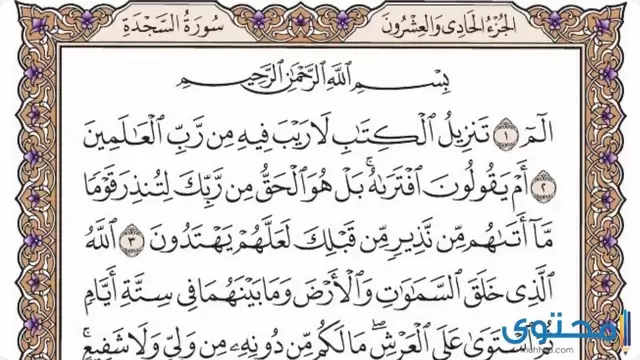 الجُزْءُ الحَادِى وَالعِشْرُونَ سُورَةُ السَّجْدَةِ
بِسْمِ اللَّهِ الرَّحْمَٰنِ الرَّحِيمِ
الٓمٓ ١ تَنزِيلُ ٱلْكِتَٰبِ لَا رَيْبَ فِيهِ مِن رَّبِّ ٱلْعَٰلَمِينَ
٢ أَمْ يَقُولُونَ ٱفْتَرَىٰهُ ۚ بَلْ هُوَ ٱلْحَقُّ مِن رَّبِّكَ لِتُنذِرَ قَوْمًا
مَّآ أَتَىٰهُم مِّن نَّذِيرٍ مِّن قَبْلِكَ لَعَلَّهُمْ يَهْتَدُونَ ٣ ٱللَّهُ
ٱلَّذِى خَلَقَ ٱلسَّمَٰوَٰتِ وَٱلْأَرْضَ وَمَا بَيْنَهُمَا فِى سِتَّةِ أَيَّامٍ
ٱسْتَوَىٰ عَلَى ٱلْعَرْشِ ۖ مَا لَكُم مِّن دُونِهِۦ مِن وَلِىٍّ وَلَا شَفِيعٍ ۚ
محتوى